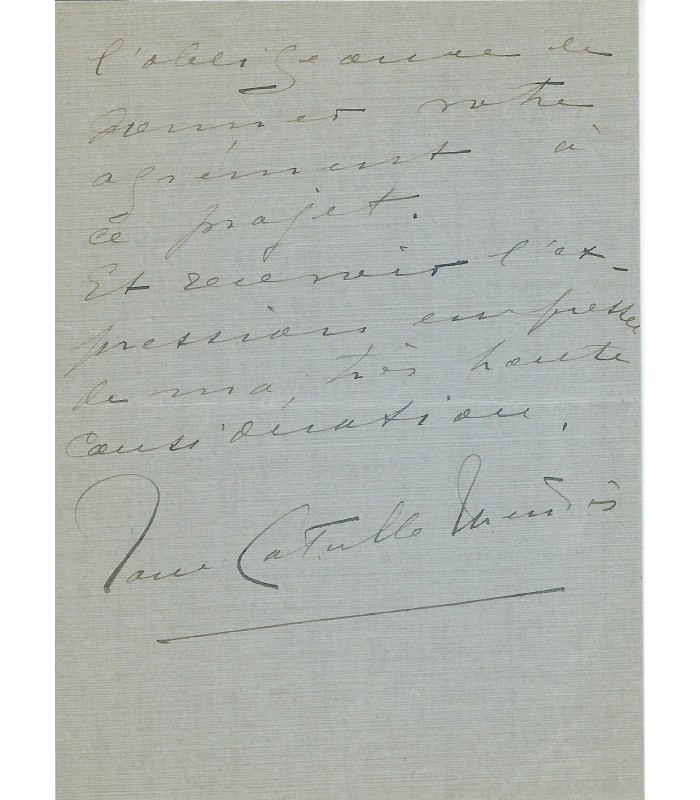 l'obligeance de
donner votre
agrément à
ce projet.
Et recevoir l'ex-
pression empressée
de ma, très haute
considération.
Jane Catulle Mendès